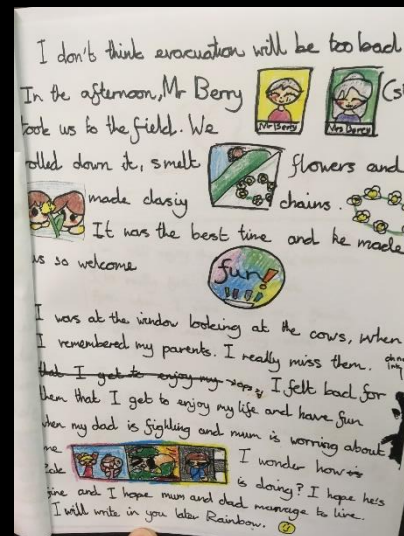 I don't think evacuation will be too bad
In the afternoon, Mr Berry
took us to the field. We
Mr Berry
Mrs Darcy
rolled down it, smelt flowers and
made daisiy chains.
It was the best time and he made
us so welcome
fun!
I was at the window looking at the cows, when
I remembered my parents. I really miss them.
that I get to enjoy my I felt bad for
them that I get to enjoy my life and have fun
when my dad is fighling and mum is worring about
me I wonder how is
is doing? I hope he's
and I hope mum and dad manage to live.
I will write in you later Rainbow.